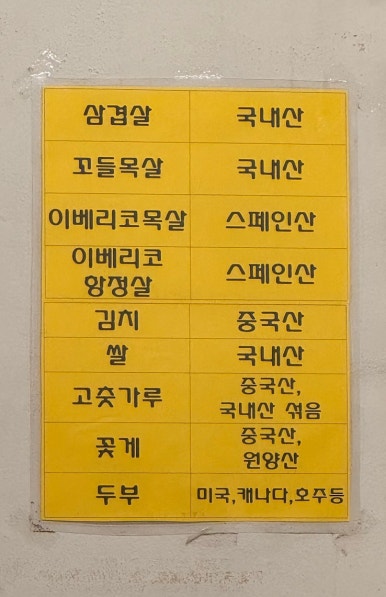 삼겹살 국내산
꼬들목살 국내산
이베리코목살 스페인산
이베리코
항정살 스페인산
김치 중국산
쌀 국내산
고춧가루 중국산,
국내산 섞음
꽃게 중국산,
원양산
두부 미국,캐나다,호주등